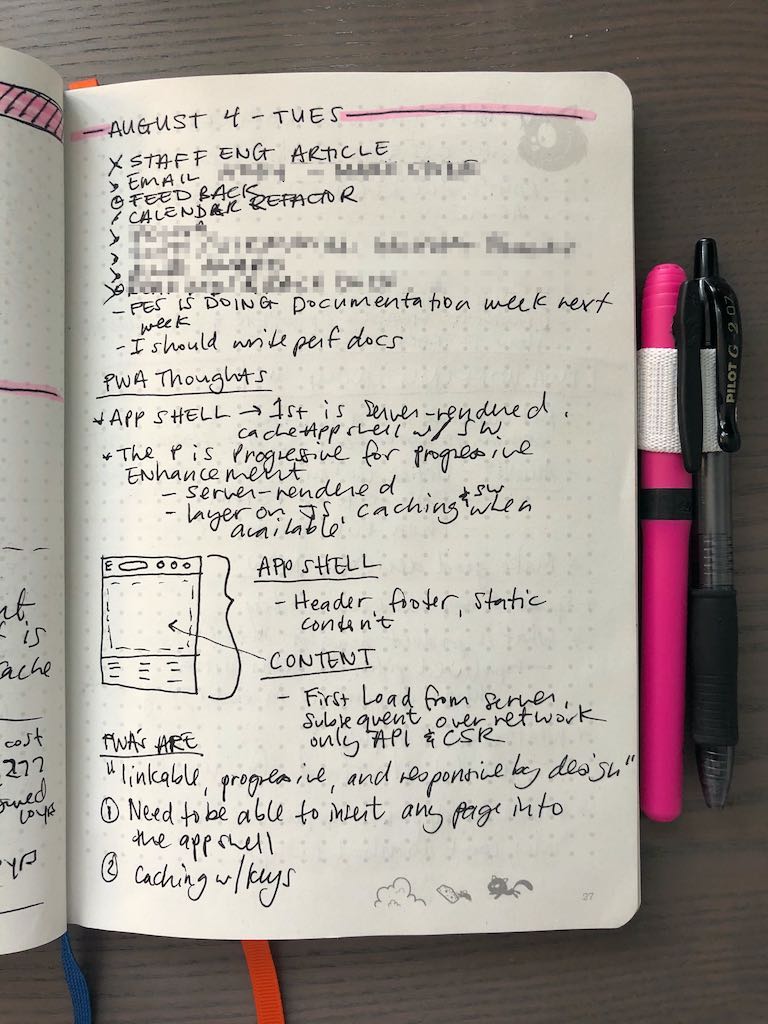 AUGUST 4 - TUES
X STAFF ENG ARTICLE
> EMAIL
FEEDBACK
/ CALENDAR REFACTOR
- PES IS DOING Documentation week next
week
- I should write perf docs
PWA Thoughts
* APP SHELL → 1st is server-rendered.
cache App shell w/ SW
* The P is Progressive for progressive
ENHANCEMENT
- server-rendered
- layer on JS, caching & SW when
available
APP SHELL
- Header, footer, static
content
CONTENT
- First Load from server,
subsequent over network
only API & CSR
PWA's ARE
"linkable, progressive, and responsive by design"
① Need to be able to insert any page into
the app shell
② Caching w/ keys
27
ache
cost
PILOT G-2 07